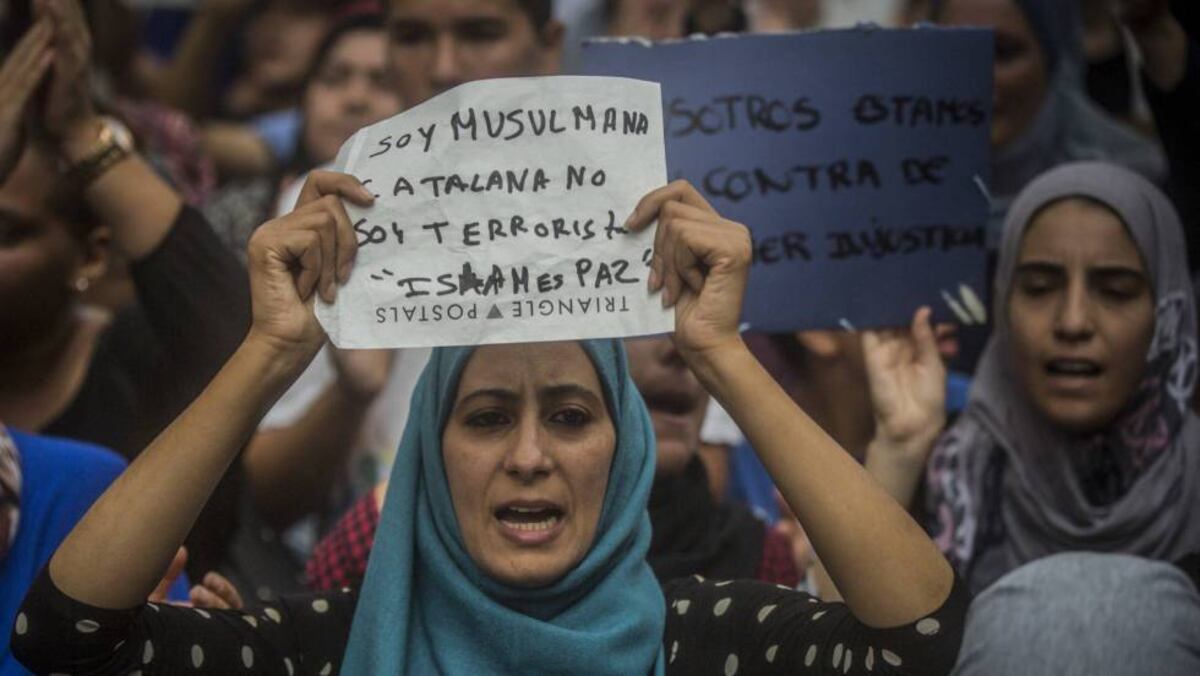 SOY MUSULMANA
CATALANA NO
SOY TERRORISTA
"ISLAM ES PAZ"
TRIANGLE ▲ POSTALS
SOTROS ESTAMOS
CONTRA DE
IER INJUSTICIA